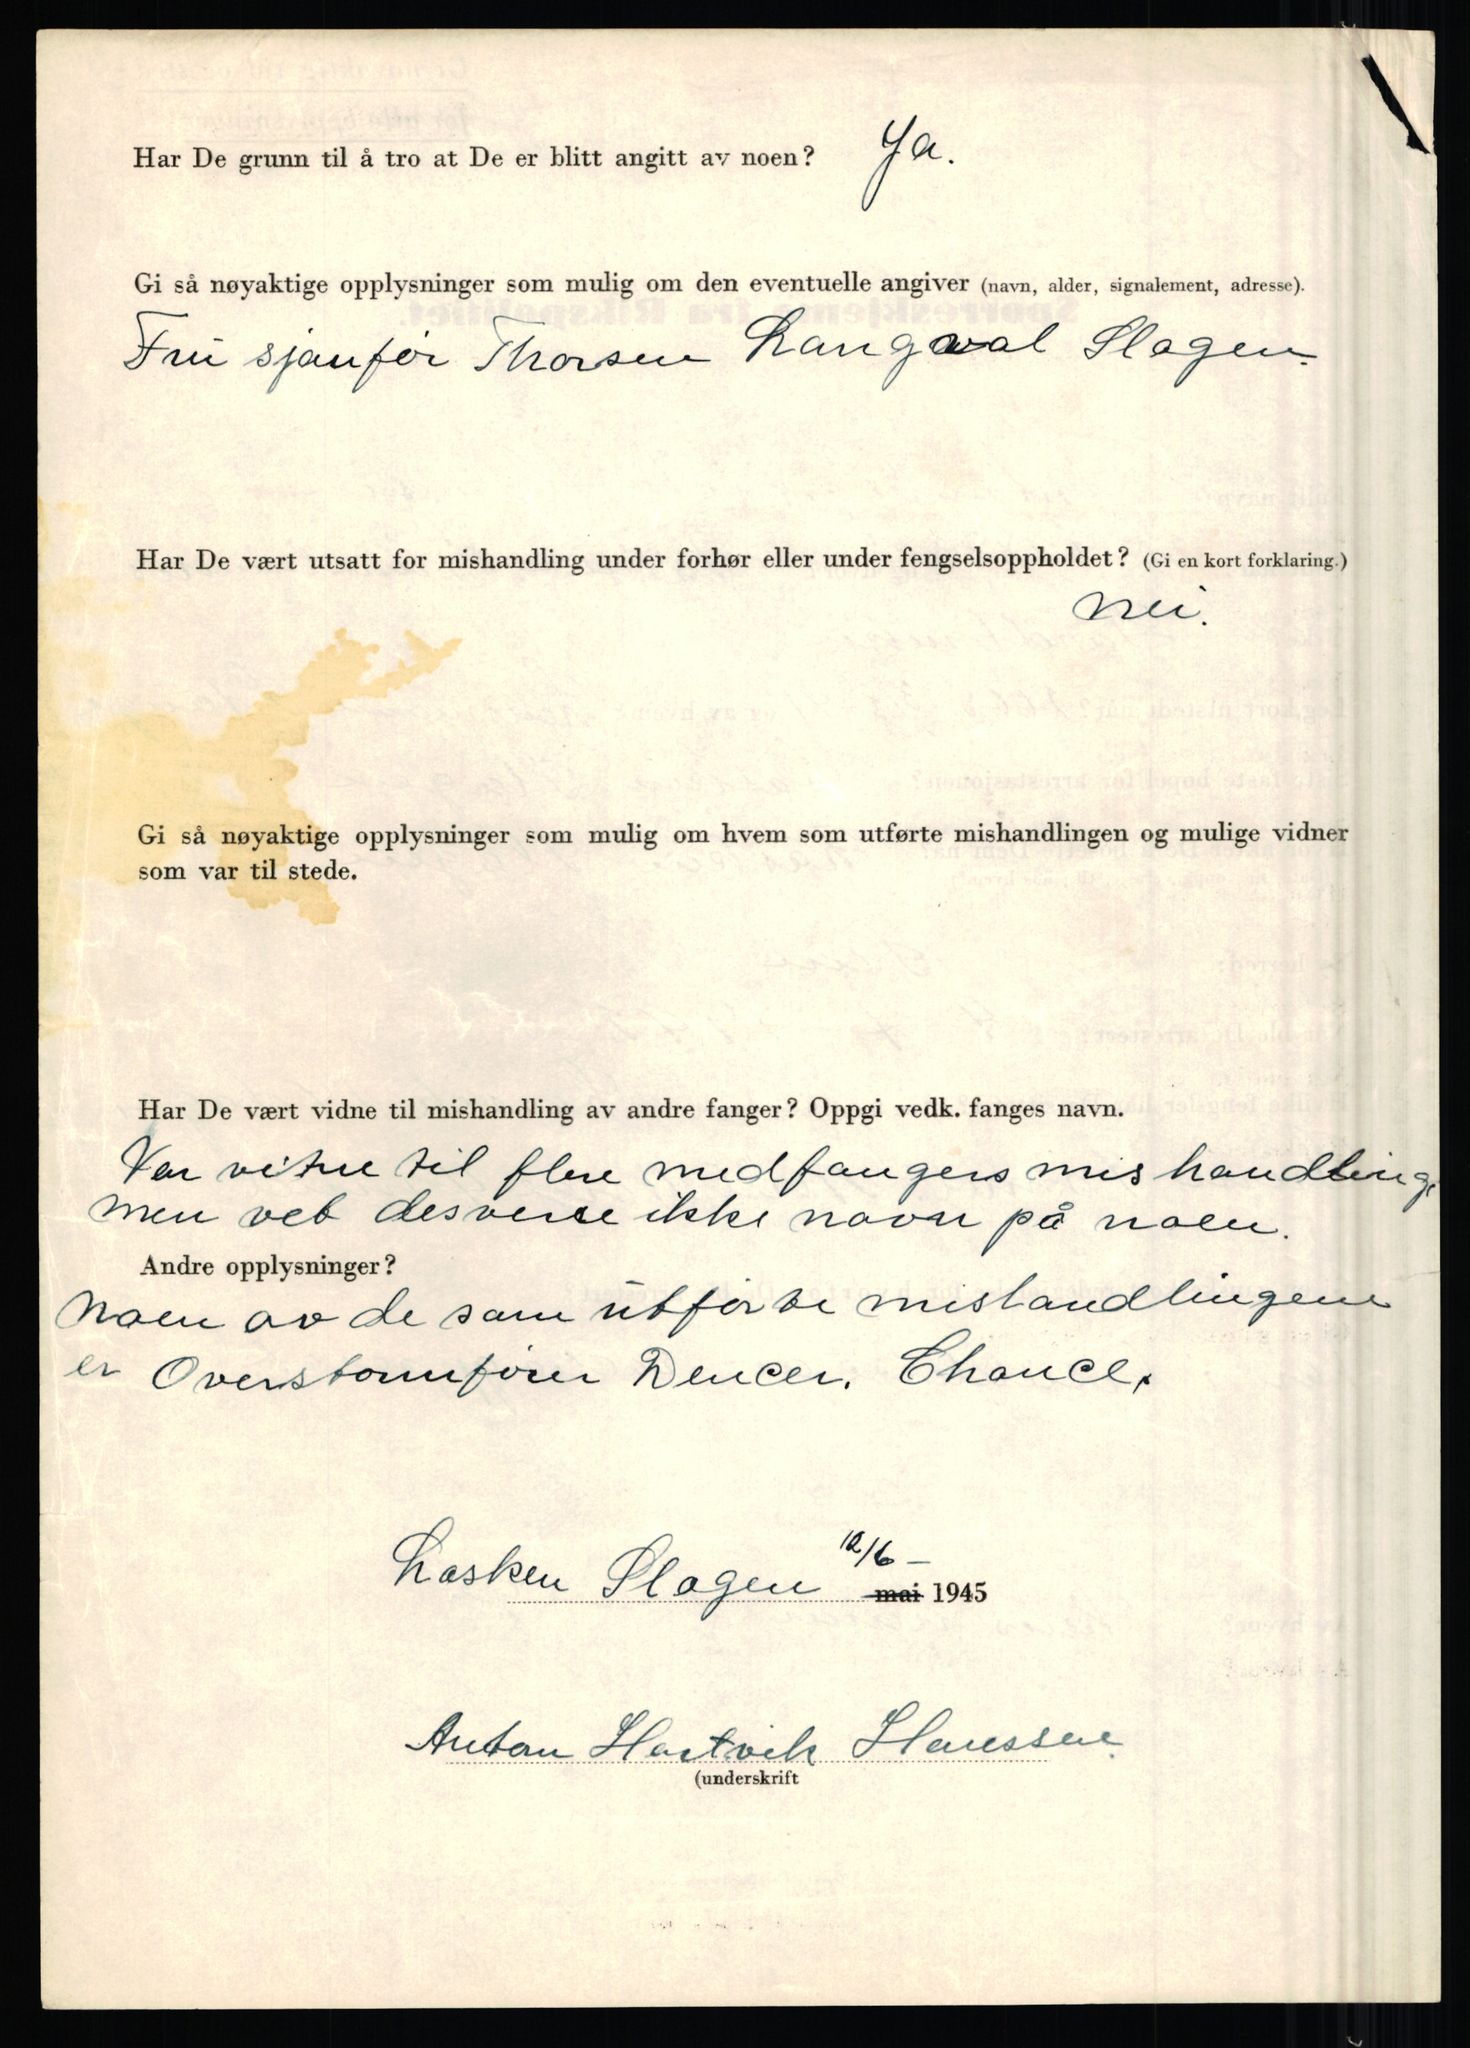 Har De grunn til å tro at De er blitt angitt av noen? Ja.
Gi så nøyaktige opplysninger som mulig om den eventuelle angiver (navn, alder, signalement, adresse).
Fru sjanfør Thorsen Langval Slagen.
Har De vært utsatt for mishandling under forhør eller under fengselsoppholdet? (Gi en kort forklaring.)
nei.
Gi så nøyaktige opplysninger som mulig om hvem som utførte mishandlingen og mulige vidner
som var til stede.
Har De vært vidne til mishandling av andre fanger? Oppgi vedk. fanges navn.
Var vitne til flere medfangers mishandling,
men vet desverre ikke navn på noen.
Andre opplysninger?
Noen av de som utførte mishandlingene
er Overstormfører Dencer. Chance.
Løsken Slagen 12/6 –
mai 1945
Anton Hartvik Hanssen.
(underskrift